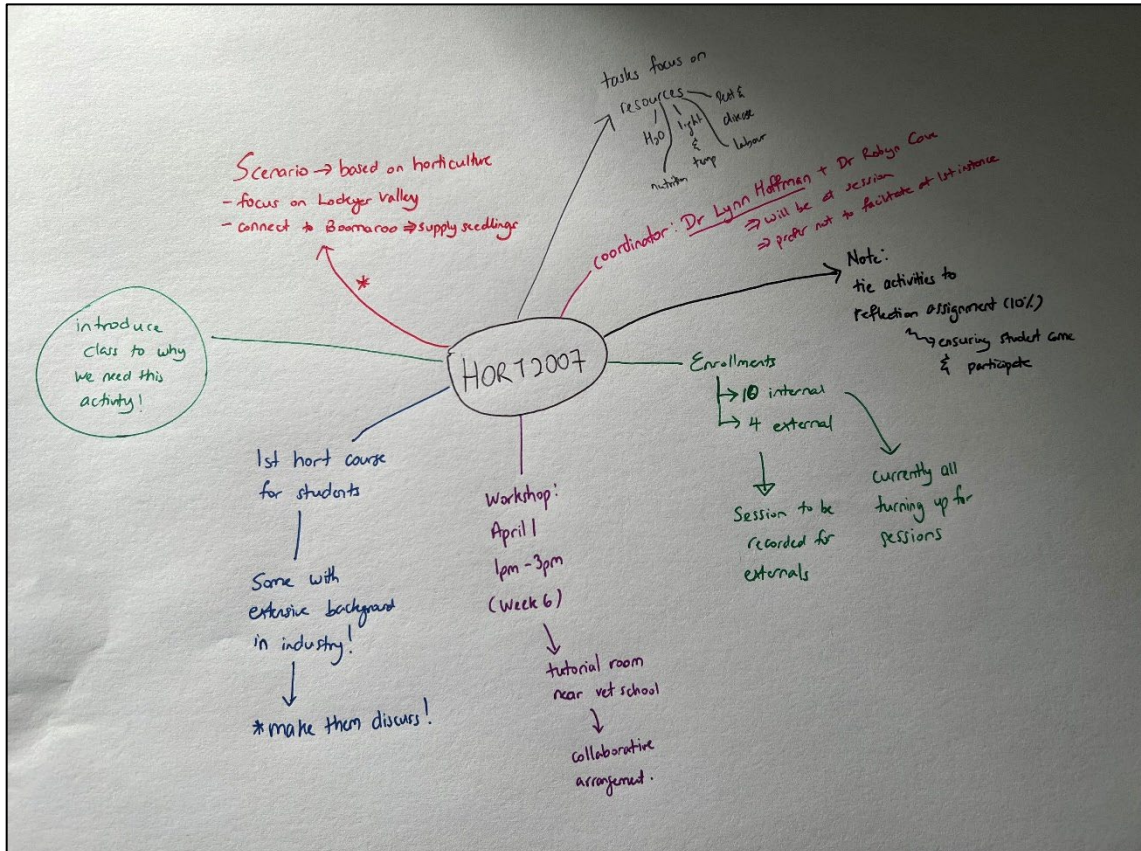 HORT2007
tasks focus on
resources
H₂O
nutrition
light
&
temp
labour
Pest &
disease
Scenario → based on horticulture
- focus on Lockyer Valley
- connect to Boomaroo ⇒ supply seedlings
*
coordinator: Dr Lynn Hoffman + Dr Robyn Cave
⇒ will be at session
⇒ prefer not to facilitate at 1st instance
Note:
tie activities to
reflection assignment (10%)
ensuring student come
& participate
introduce
class to why
we need this
activity!
Enrollments
→ 10 internal
→ 4 external
Session to be
recorded for
externals
currently all
turning up for
sessions
1st hort course
for students
Some with
extensive background
in industry!
*make them discuss!
Workshop:
April 1
1pm - 3pm
(Week 6)
tutorial room
near vet school
collaborative
arrangement.